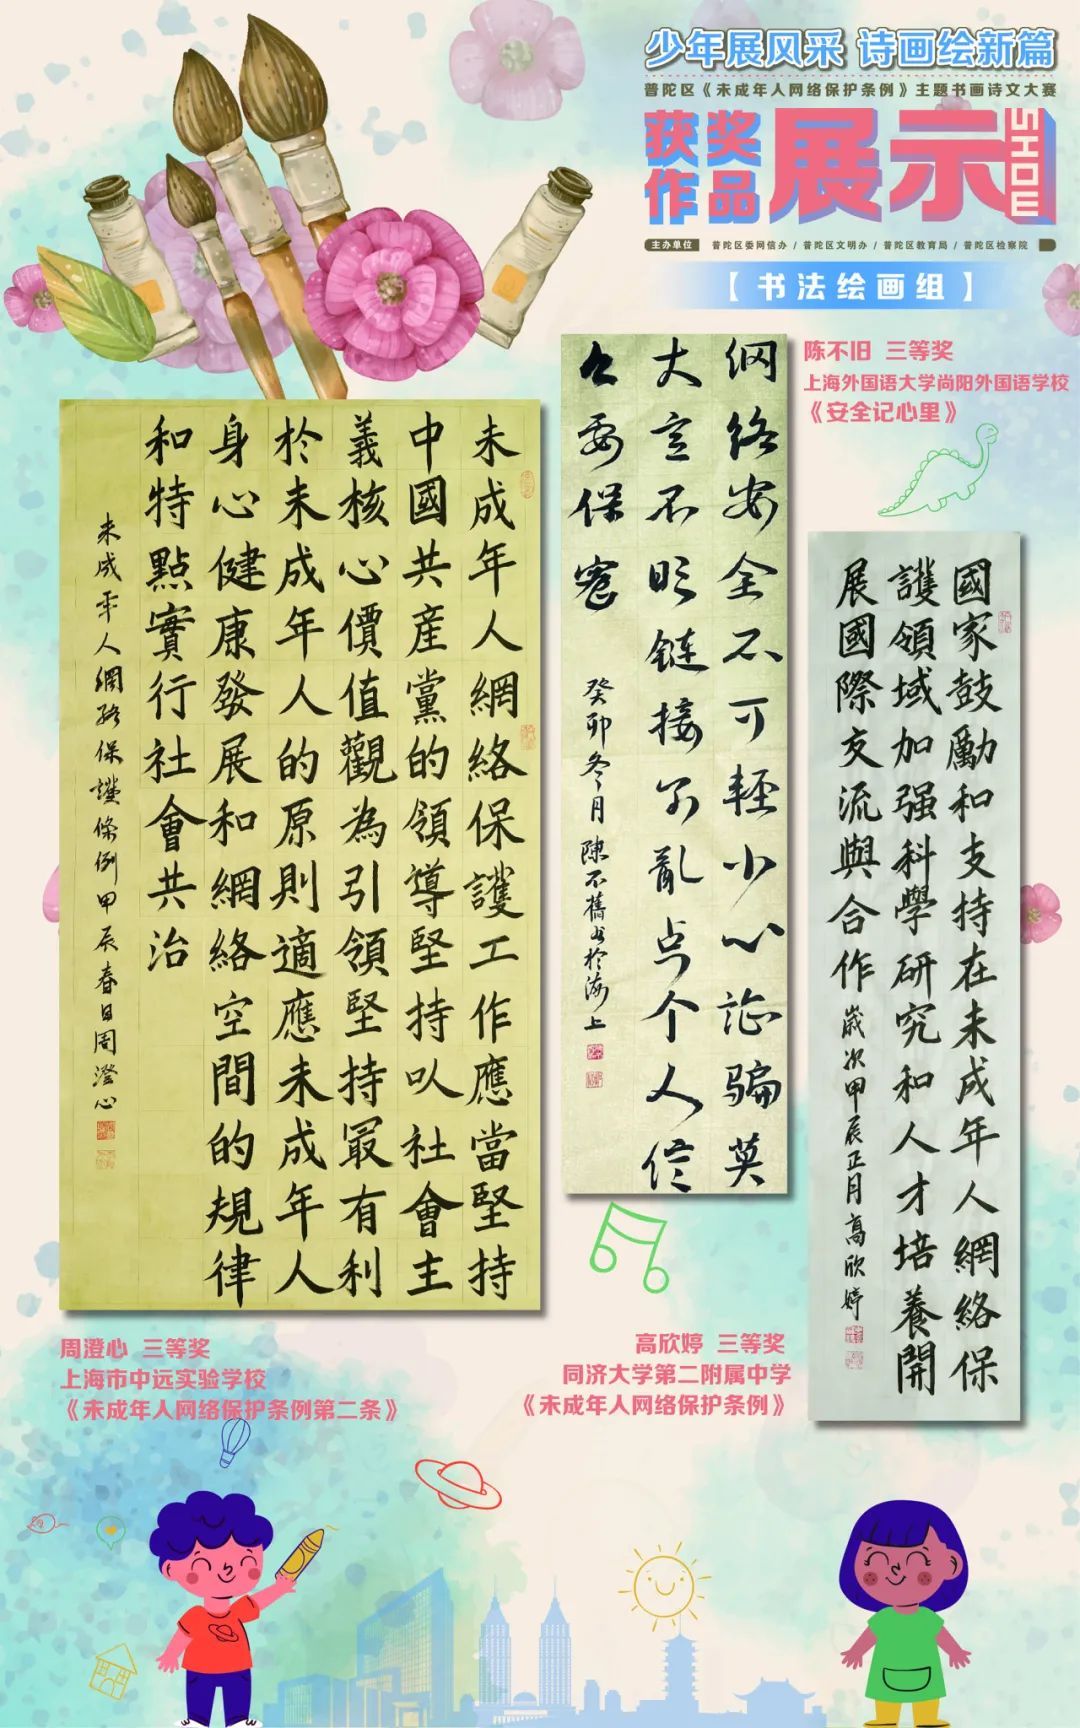 少年展风采 诗画绘新篇
普陀区《未成年人网络保护条例》主题书画诗文大赛
获奖作品展示
SHOW
主办单位 普陀区委网信办 / 普陀区文明办 / 普陀区教育局 / 普陀区检察院
【书法绘画组】
陈不旧 三等奖
上海外国语大学尚阳外国语学校
《安全记心里》
网络安全不可輕小心诈骗莫
大意不明链接不亂点个人信
息要保密
癸卯冬月陳不舊书於海上
未成年人網絡保護工作應當堅持
中國共産黨的領導堅持以社會主
義核心價值觀為引領堅持最有利
於未成年人的原則適應未成年人
身心健康發展和網絡空間的規律
和特點實行社會共治
未成年人網絡保護條例甲辰春日周澄心
國家鼓勵和支持在未成年人網絡保
護領域加强科學研究和人才培養開
展國際交流與合作
歲次甲辰正月高欣婷
周澄心 三等奖
上海市中远实验学校
《未成年人网络保护条例第二条》
高欣婷 三等奖
同济大学第二附属中学
《未成年人网络保护条例》